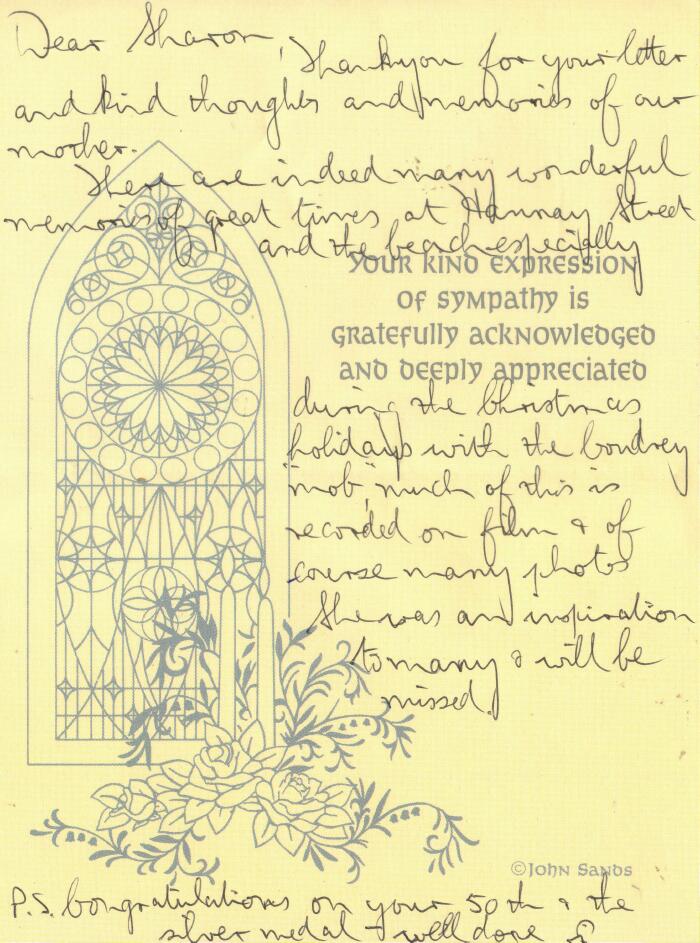 Dear Sharon,
Thankyou for your letter
and kind thoughts and memories of our
mother.
There are indeed many wonderful
memories of great times at Hannay Street
and the beach especially
YOUR KIND EXPRESSION
OF SYMPATHY IS
GRATEFULLY ACKNOWLEDGED
AND DEEPLY APPRECIATED
during the Christmas
holidays with the
"mob", much of this is
recorded on film & of
course many photos
She was an inspiration
to many & will be
missed.
©JOHN SANDS
P.S. Congratulations on your 50th & the
silver medal - well done